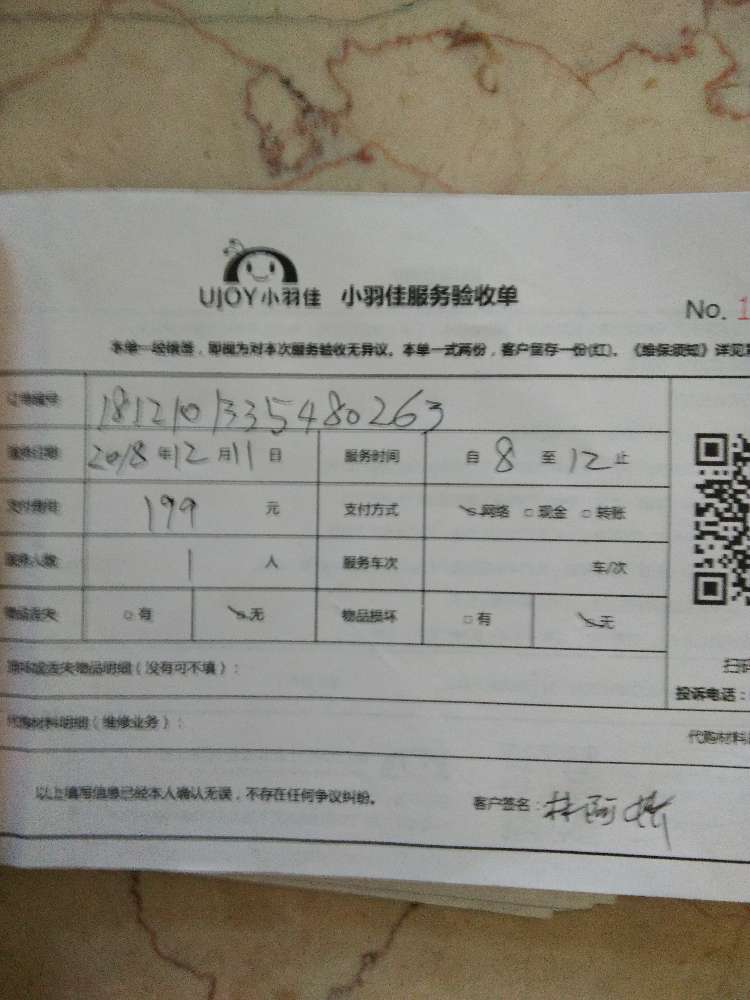 UJOY小羽佳 小羽佳服务验收单
No. 1
本单一经签签，即视为对本次服务验收无异议。本单一式两份，客户留存一份(红)。《维保须知》详见
订单编号 181210133548 0263
服务日期 2018年12月11日 服务时间 自8至12止
支付费用 199元 支付方式 网络 现金 转账
服务人数 1人 服务车次 车/次
物品丢失 有 无 物品损坏 有 无
损坏或丢失物品明细（没有可不填）：
扫码
投诉电话：
代购材料明细（维修业务）：
代购材料
以上填写信息已经本人确认无误，不存在任何争议纠纷。
客户签名：林阿